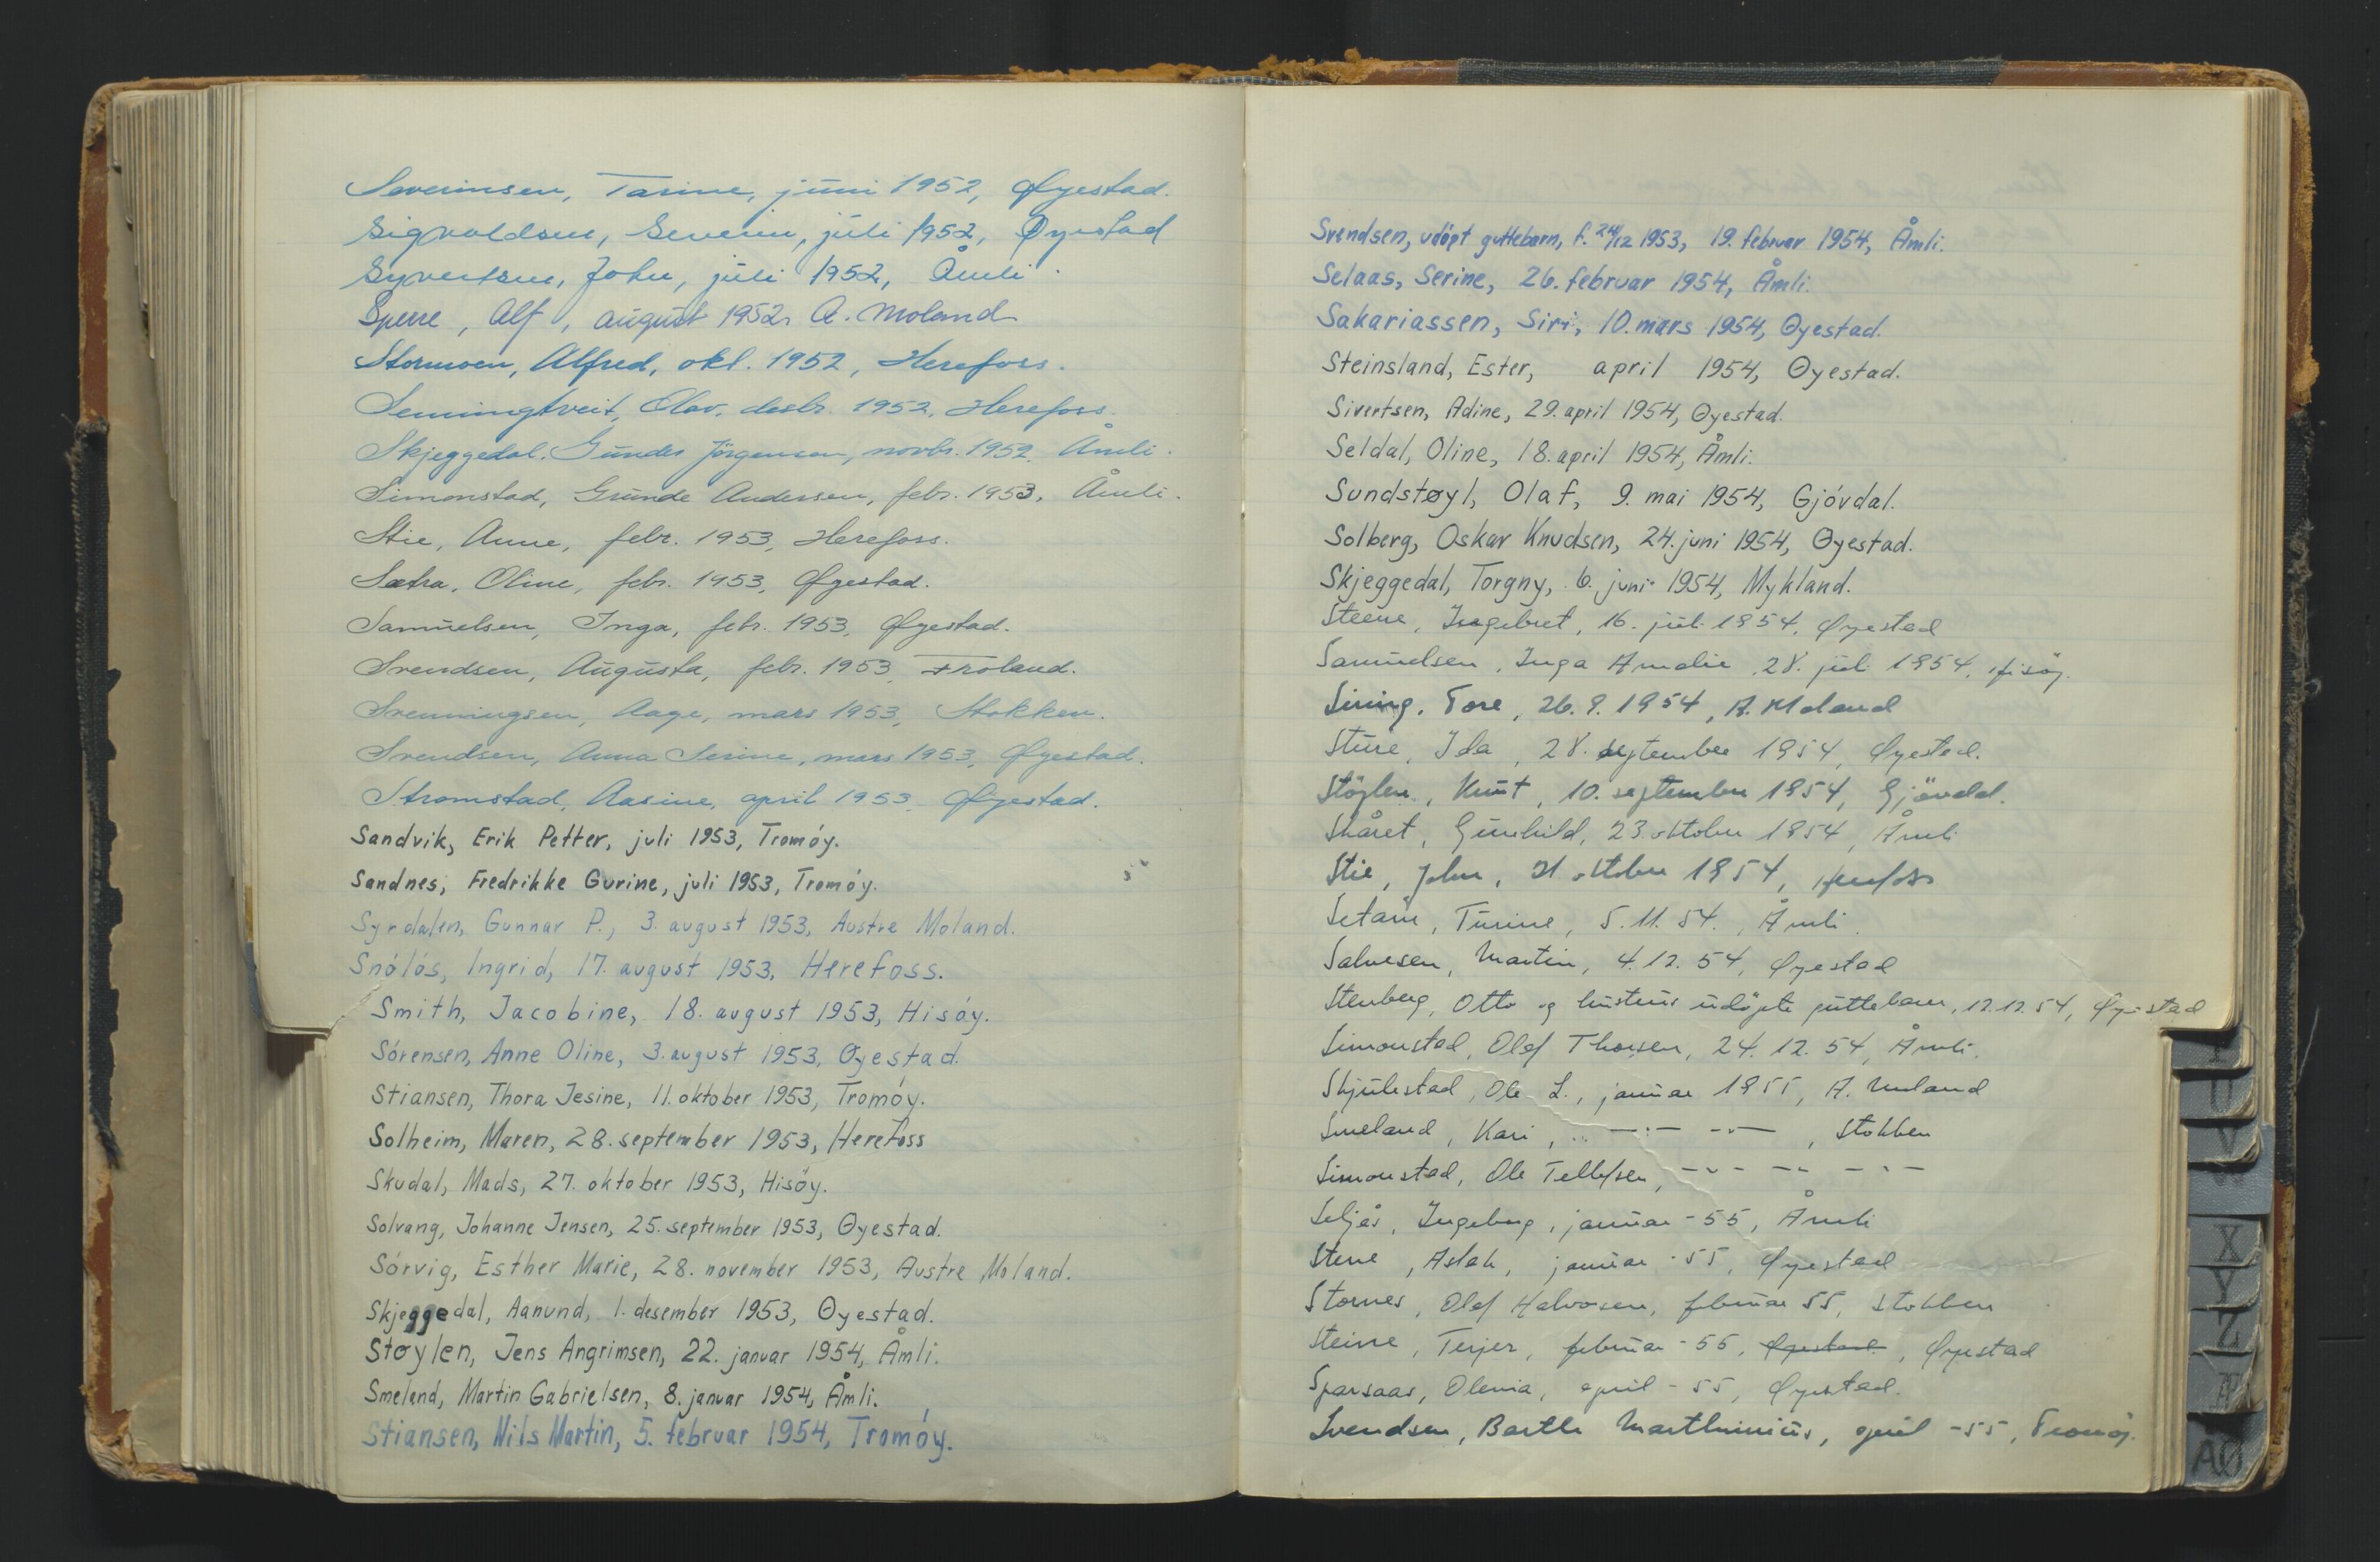 Severinsen, Tarine, juni 1952, Øyestad.
Sigvaldsen, Severin, juli 1952, Øyestad
Syvertsen, John, juli 1952, Åmli.
Sperre, Alf, august 1952, A. Moland
Stormoen, Alfred, okt. 1952, Herefoss.
Senumgtveit, Olav, desbr. 1952, Herefoss.
Skjeggedal, Gunder Jörgensen, novbr. 1952, Åmli.
Simonstad, Grunde Andersen, febr. 1953, Åmli.
Stie, Anne, febr. 1953, Herefoss.
Sætra, Oline, febr. 1953, Øyestad.
Samuelsen, Inga, febr. 1953, Øyestad.
Svendsen, Augusta, febr. 1953, Froland.
Svenningsen, Aage, mars 1953, Stokken.
Svendsen, Anna Serine, mars 1953, Øyestad.
Strømstad, Aasine, april 1953, Øyestad.
Sandvik, Erik Petter, juli 1953, Tromóy.
Sandnes, Fredrikke Gurine, juli 1953, Tromóy.
Syrdalen, Gunnar P., 3. august 1953, Austre Moland.
Snólós, Ingrid, 17. august 1953, Herefoss.
Smith, Jacobine, 18. august 1953, Hisóy.
Sórensen, Anne Oline, 3. august 1953, Øyestad.
Stiansen, Thora Jesine, 11. oktober 1953, Tromóy.
Solheim, Maren, 28. september 1953, Herefoss
Skudal, Mads, 27. oktober 1953, Hisóy.
Solvang, Johanne Jensen, 25. september 1953, Øyestad.
Sórvig, Esther Marie, 28. november 1953, Austre Moland.
Skjeggedal, Aanund, 1. desember 1953, Øyestad.
Støylen, Jens Angrimsen, 22. januar 1954, Åmli.
Smeland, Martin Gabrielsen, 8. januar 1954, Åmli.
Stiansen, Nils Martin, 5. februar 1954, Tromóy.
Svendsen, udópt guttebarn, f. 24/12 1953, 19. februar 1954, Åmli.
Selaas, Serine, 26. februar 1954, Åmli.
Sakariassen, Siri, 10. mars 1954, Øyestad.
Steinsland, Ester, april 1954, Øyestad.
Sivertsen, Adine, 29. april 1954, Øyestad.
Seldal, Oline, 18. april 1954, Åmli.
Sundstøyl, Olaf, 9. mai 1954, Gjóvdal.
Solberg, Oskar Knudsen, 24. juni 1954, Øyestad.
Skjeggedal, Torgny, 6. juni 1954, Mykland.
Steene, Ingebret, 16. juli 1954, Øyestad
Samuelsen, Inga Amalie, 28. juli 1954, Hisöy.
Sining, Tore, 26.9.1954, A. Moland
Sture, Ida, 28. september 1954, Øyestad.
Stöylen, Knut, 10. september 1954, Gjövdal.
Skåret, Gunhild, 23 oktober 1954, Åmli
Stie, John, 21. oktober 1954, Herefoss
Setane, Turine, 5.11.54., Åmli.
Salvesen, Martin, 4.12.54, Øyestad
Stenberg, Otto og hustrus udöpte guttebarn, 12.12.54, Øyestad
Simonstad, Olef Thorsen, 24.12.54, Åmli.
Skjulestad, Ole L., januar 1955, A. Moland
Smeland, Kari, — " — — " — , Stokken
Simonstad, Ole Tellefsen, — " — — " — — " —
Seljås, Ingeborg, januar - 55, Åmli
Stene, Aslak, januar - 55, Øyestad
Stornes, Olef Halvorsen, februar 55, Stokken
Steine, Terjer, februar - 55, Øyestad, Øyestad
Sparsaas, Olevia, april - 55, Øyestad.
Svendsen, Barthe Marthinius, april - 55, Tromöy.
U
V
X
Y
Z
Æ
ÅØ